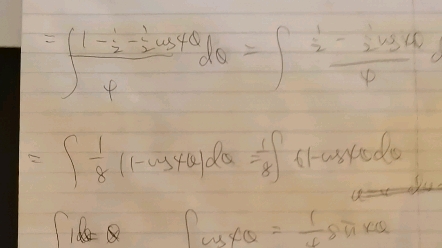 = ∫ (1 - 1/2 - 1/2 cos4θ)/4 dθ = ∫ (1/2 - 1/2 cos4θ)/4 d
= ∫ 1/8 (1-cos4θ)dθ = 1/8 ∫ (1-cos4θ dθ
∫ 1dθ = θ ∫ cos4θ = 1/4 sin4θ